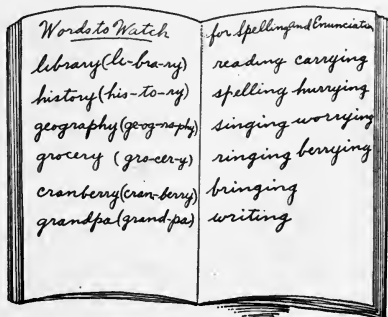 Words to Watch
library (li-bra-ry)
history (his-to-ry)
geography (ge-og-ra-phy)
grocery (gro-cer-y)
cranberry (cran-berry)
grandpa (grand-pa)
for Spelling and Enunciation
reading carrying
spelling hurrying
singing worrying
ringing berrying
bringing
writing